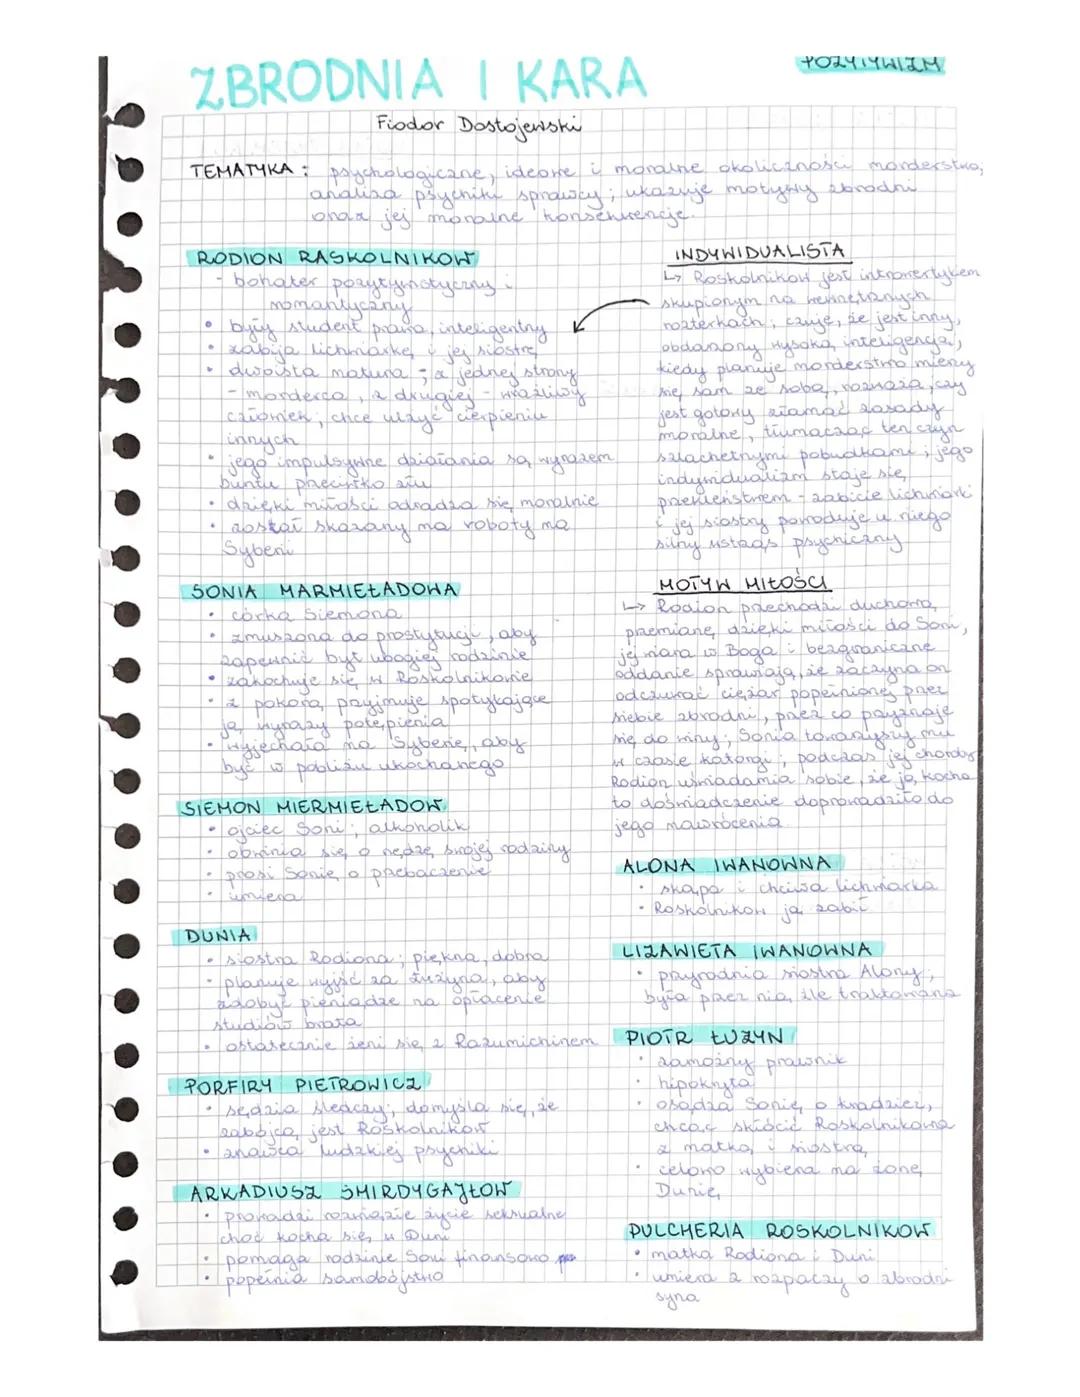 ZBRODNIA I KARA
POZYTYWIZM
Fiodor Dostojewski
TEMATYKA: psychologiczne, ideowe i moralne okoliczności morderstwa;
analiza psychiki sprawcy; ukazuje motywy zbrodni
oraz jej moralne konsekwencje.
RODION RASKOLNIKOW
- bohater pozytywistyczny i
romantyczny
• były student prawa, inteligentny
• zabija lichwiarkę i jej siostrę
• dwoista natura; z jednej strony
- morderca, z drugiej - wrażliwy
człowiek; chce ulżyć cierpieniu
innych
• jego impulsywne działania są wyrazem
buntu przeciwko złu
• dzięki miłości odradza się moralnie
• został skazany na roboty na
Syberii
SONIA MARMIEŁADOWA
• córka Siemona
• zmuszona do prostytucji, aby
zapewnić byt ubogiej rodzinie
• zakochuje się w Roskolnikowie
• z pokorą przyjmuje spotykające
ją wyrazy potępienia
• wyjechała na Syberię, aby
być w pobliżu ukochanego
SIEMON MIERMIEŁADOW
• ojciec Soni; alkoholik
• obwinia się o nędzę swojej rodziny
• prosi Sonię o przebaczenie
• umiera
DUNIA
• siostra Rodiona; piękna, dobra
• planuje wyjść za Łużyna, aby
zdobyć pieniądze na opłacenie
studiów brata
• ostatecznie żeni się z Razumichinem
PORFIRY PIETROWICZ
• sędzia śledczy; domyśla się, że
zabójcą jest Roskolnikow
• znawca ludzkiej psychiki
ARKADIUSZ SMIRDYGAJŁOW
• prowadzi rozwiązłe życie seksualne
choć kocha się w Duni
• pomaga rodzinie Soni finansowo
• popełnia samobójstwo
INDYWIDUALISTA
↳ Roskolnikow jest introwertykiem
skupionym na wewnętrznych
rozterkach; czuje, że jest inny,
obdarzony wysoką inteligencją;
kiedy planuje morderstwo mierzy
się sam ze sobą, rozważa, czy
jest gotowy złamać zasady
moralne, tłumacząc ten czyn
szlachetnymi pobudkami; jego
indywidualizm staje się
przekleństwem - zabicie lichwiarki
i jej siostry powoduje u niego
silny wstrząs psychiczny
MOTYW MIŁOŚCI
↳ Rodion przechodzi duchową
przemianę dzięki miłości do Soni,
jej wiara w Boga i bezgraniczne
oddanie sprawiają, że zaczyna on
odczuwać ciężar popełnionej przez
siebie zbrodni, przez co przyznaje
się do winy; Sonia towarzyszy mu
w czasie katorgi; podczas jej choroby
Rodion uświadamia sobie, że ją kocha
to doświadczenie doprowadziło do
jego nawrócenia
ALONA IWANOWNA
• skąpa i chciwa lichwiarka
• Roskolnikow ją zabił
LIZAWIETA IWANOWNA
• przyrodnia siostra Alony;
była przez nią źle traktowana
PIOTR ŁUŻYN
• zamożny prawnik
• hipokryta
• osądza Sonię o kradzież,
chcąc skłócić Roskolnikowa
z matką i siostrą
• celowo wybiera na żonę
Dunię
PULCHERIA ROSKOLNIKOW
• matka Rodiona i Duni
• umiera z rozpaczy o zbrodni
syna